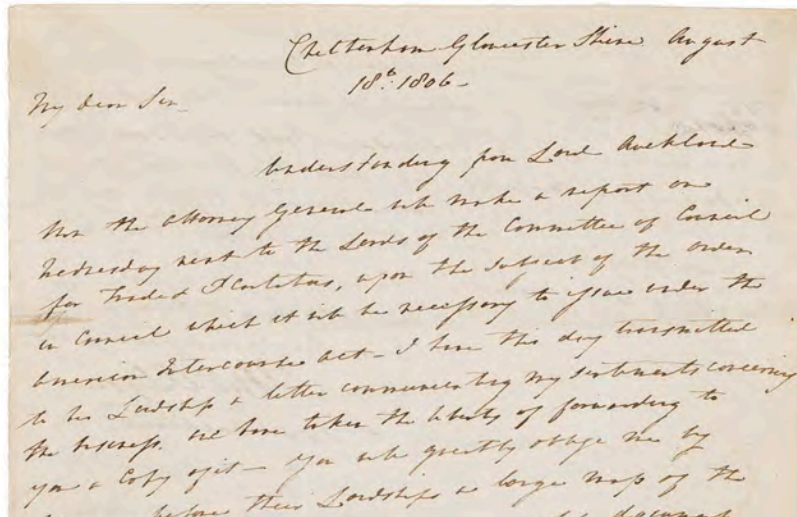 Cheltenham Gloucester Shire August
18th. 1806 -
My dear Sir
Understanding from Lord Auckland
that the Attorney General will make a report on
Wednesday next to the Lords of the Committee of Council
for Trade & Plantations, upon the subject of the Orders
in Council which it will be necessary to issue under the
American Intercourse Act - I have this day transmitted
to his Lordship a letter communicating my sentiments concerning
the business. and have taken the liberty of forwarding to
you a Copy of it - You will greatly oblige me by
before their Lordships a large map of the